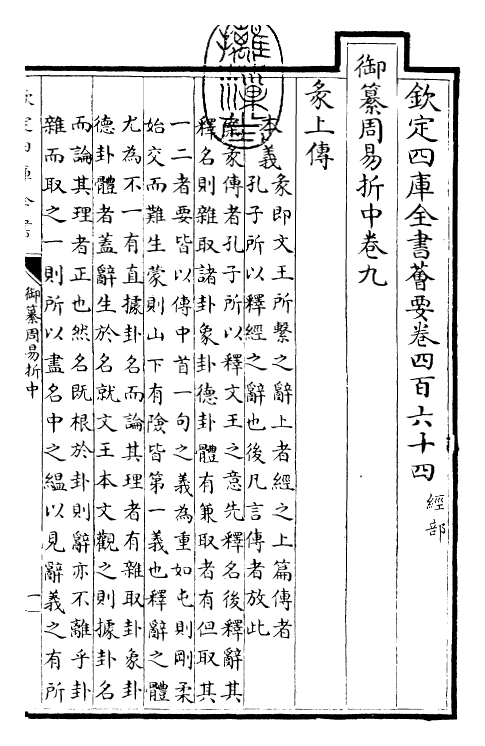 欽定四庫全書薈要卷四百六十四 經部
御纂周易折中卷九
彖上傳
本義彖即文王所繫之辭上者經之上篇傳者
孔子所以釋經之辭也後凡言傳者放此
彖傳者孔子所以釋文王之意先釋名後釋辭其
釋名則雜取諸卦象卦德卦體有兼取者有但取其
一二者要皆以傳中首一句之義為重如屯則剛柔
始交而難生蒙則山下有險皆第一義也釋辭之體
尤為不一有直據卦名而論其理者有雜取卦象卦
德卦體者蓋辭生於名就文王本文觀之則據卦名
而論其理者正也然名既根於卦則辭亦不離乎卦
雜而取之一則所以盡名中之縕以見辭義之有所
欽定四庫全書
御纂周易折中
一